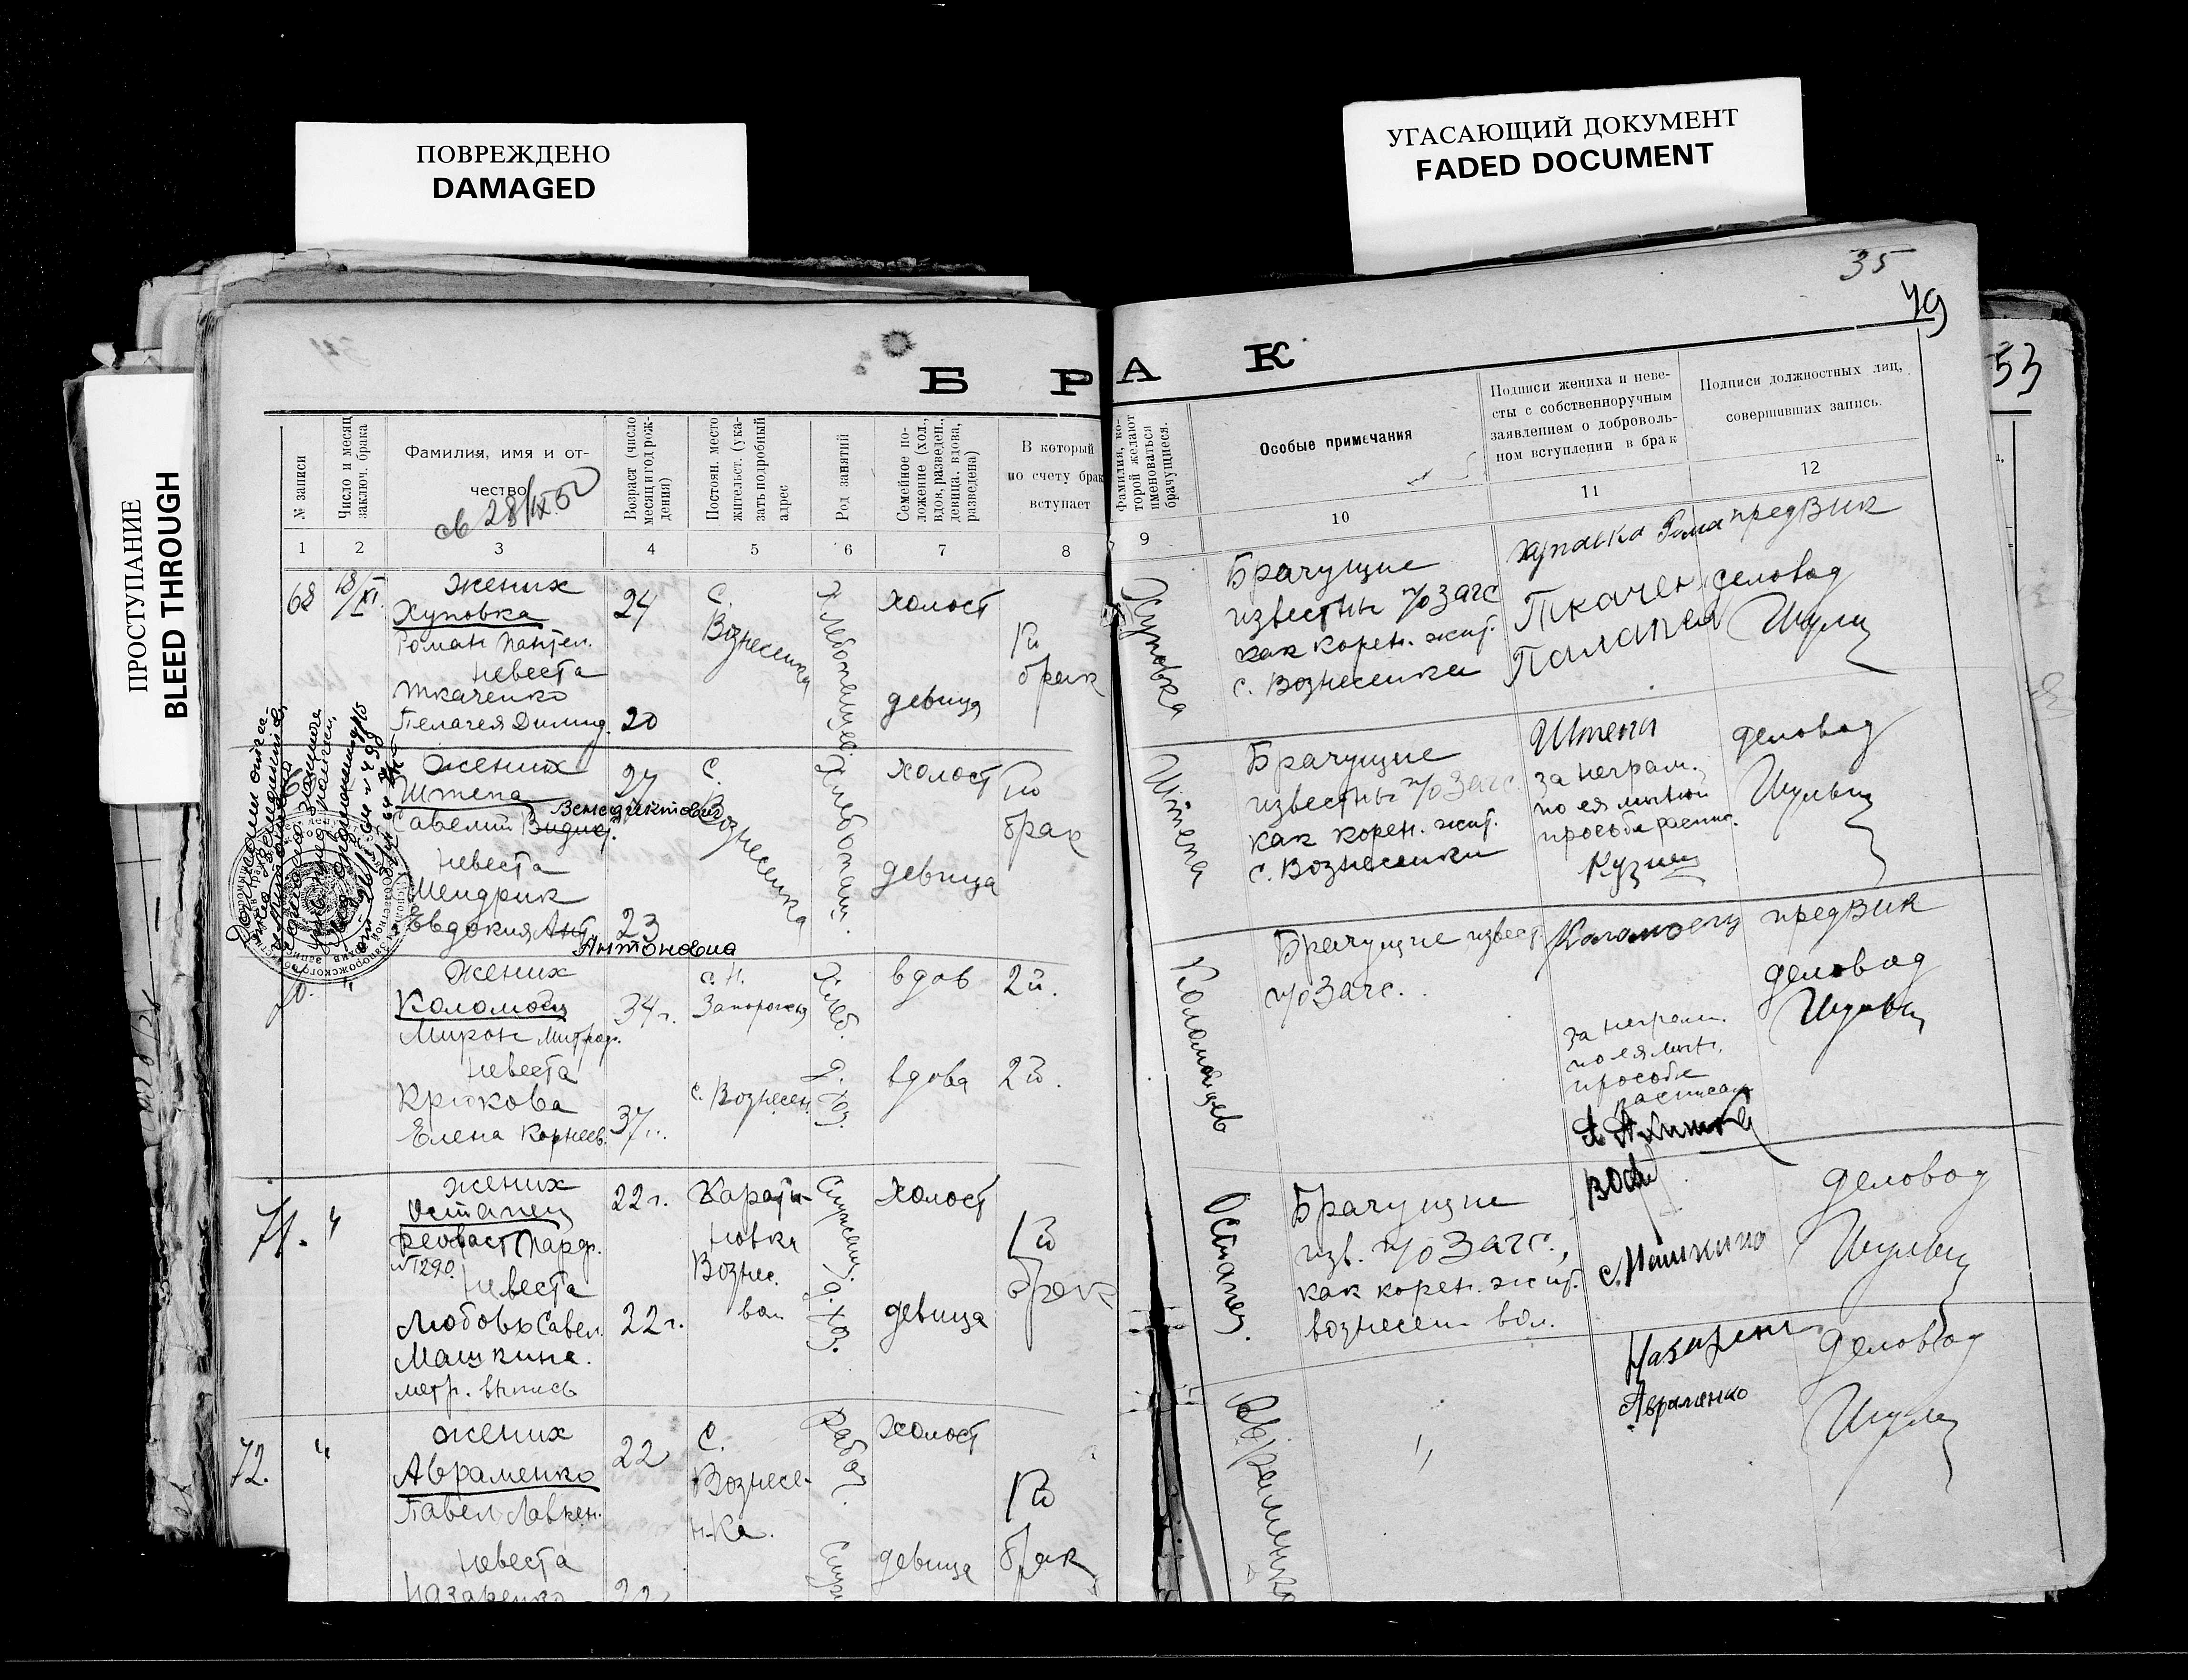 ПОВРЕЖДЕНО
DAMAGED
УГАСАЮЩИЙ ДОКУМЕНТ
FADED DOCUMENT
ПРОСТУПАНИЕ
BLEED THROUGH
35
49
53
Б Р А К
№ записи
Число и месяц
заключ. брака
Фамилия, имя и от-
чество
28/IX.52
Возраст (число
месяц и год рож-
дения)
Постоян. место
жительст. (ука-
зать подробный
адрес
Род занятий
Семейное по-
ложение (хол.,
вдов, разведен.,
девица, вдова,
разведена)
В который
по счету брак
вступает
Фамилия, ко-
торой желают
именоваться
брачущиеся.
Особые примечания
Подписи жениха и неве-
сты с собственноручным
заявлением о доброволь-
ном вступлении в брак
Подписи должностных лиц,
совершивших запись.
1 2 3 4 5 6 7 8 9 10 11 12
68 18/XI.
жених
Хуповка
Роман Пантел.
невеста
Ткаченко
Пелагея Демид.
24
20
с.
Вознесенка
Хлебопашес.
холост
девица
1й
брак
Хуповка
Брачущие
известны п/о Загс
как корен. жит.
с. Вознесенки
Ткачен
Палагея
предВик
деловод
Шульц
жених
Штепа
Савелий Видикт.
Венедиктович
невеста
Мендрик
Евдокия Ант.
Антоновна
27
23
с.
Вознесенка
Хлебопаш.
холост
девица
1й
брак
Штепа
Брачущие
известны п/о Загс.
как корен. жит.
с. Вознесенки
Штепа
за неграм.
по ея личной
просьбе распис.
деловод
Шульц
70. "
жених
Коломоец
Мирон Митроф.
невеста
Крюкова
Елена Корнеев.
34 г.
37 г.
с. Н.
Запорожья
с. Вознесен.
Хлеб.
д. хоз.
вдов
вдова
2й.
2й.
Коломойцев
Брачущие извест.
п/о Загс.
Коломоец
за неграм.
по ея личн.
просьбе
расписал
предВик
деловод
Шульц
71. "
жених
Остапец
Феовст Парф.
№1290.
невеста
Любовь Савел.
Машкина.
метр. выпись
22 г.
22 г.
Карати-
новка
Вознес.
вол
Служащ.
д. хоз.
холост
девица
1й
брак
Остапец.
Брачущие
изв. п/о Загс.,
как корен. жит.
вознесен вол.
Машкина
деловод
Шульц
72. "
жених
Авраменко
Павел Лаврен.
невеста
Назаренко
22
22
с.
Вознесе-
нка.
Рабоч.
холост
девица
1й
брак
Авраменко
"
Назарен
Авраменко
деловод
Шульц